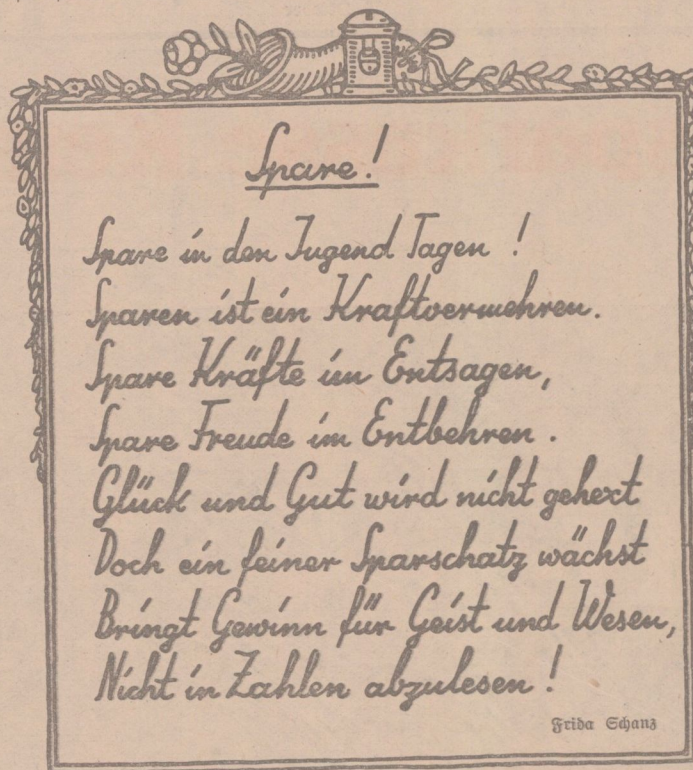 Spare!
Spare in den Jugend Tagen !
Sparen ist ein Kraftvermehren.
Spare Kräfte im Entsagen,
Spare Freude im Entbehren.
Glück und Gut wird nicht gehext
Doch ein feiner Sparschatz wächst
Bringt Gewinn für Geist und Wesen,
Nicht in Zahlen abzulesen!
Frida Schanz